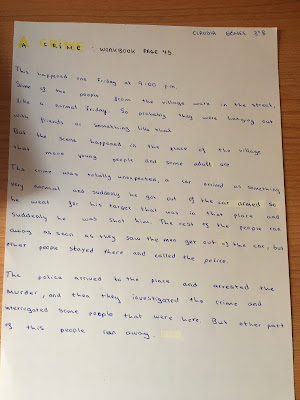 CLAUDIA GOMES 3ºB
A CRIME : WORKBOOK PAGE 45
This happened one Friday at 9:00 p.m.
Some of the people from the village were in the street,
like a normal Friday. So probably they were hanging out
with friends or something like that.
But the scene happened in the place of the village
that more young people and some adult are.
The crime was totally unexpected, a car arrived as something
very normal and suddenly he got out of the car armed so
he went for his target that was in that place and
suddenly he was shot him. The rest of the people ran
away as soon as they saw the men get out of the car, but
other people stayed there and called the police.
The police arrived to the place and arrested the
murder, and then they investigated the crime and
interrogated some people that were here. But other part
of this people ran away.